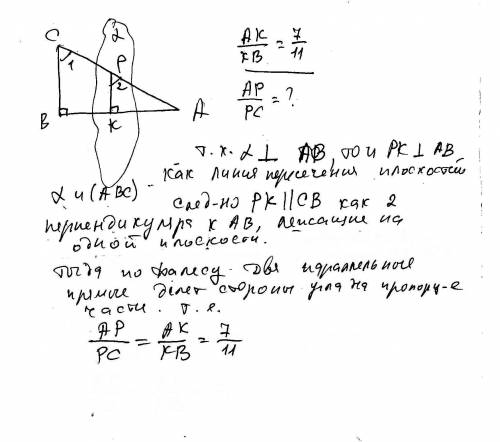 C
α
1
P
2
B
K
A
AK/KB = 7/11
AP/PC = ?
т.к. α ⊥ AB, то и PK ⊥ AB
как линия пересечения плоскостей
α и (ABC)
след-но PK || CB как 2
перпендикуляра к AB, лежащие на
одной плоскости.
тогда по Фалесу две параллельные
прямые делят стороны угла на пропорц-е
части. т.е.
AP/PC = AK/KB = 7/11